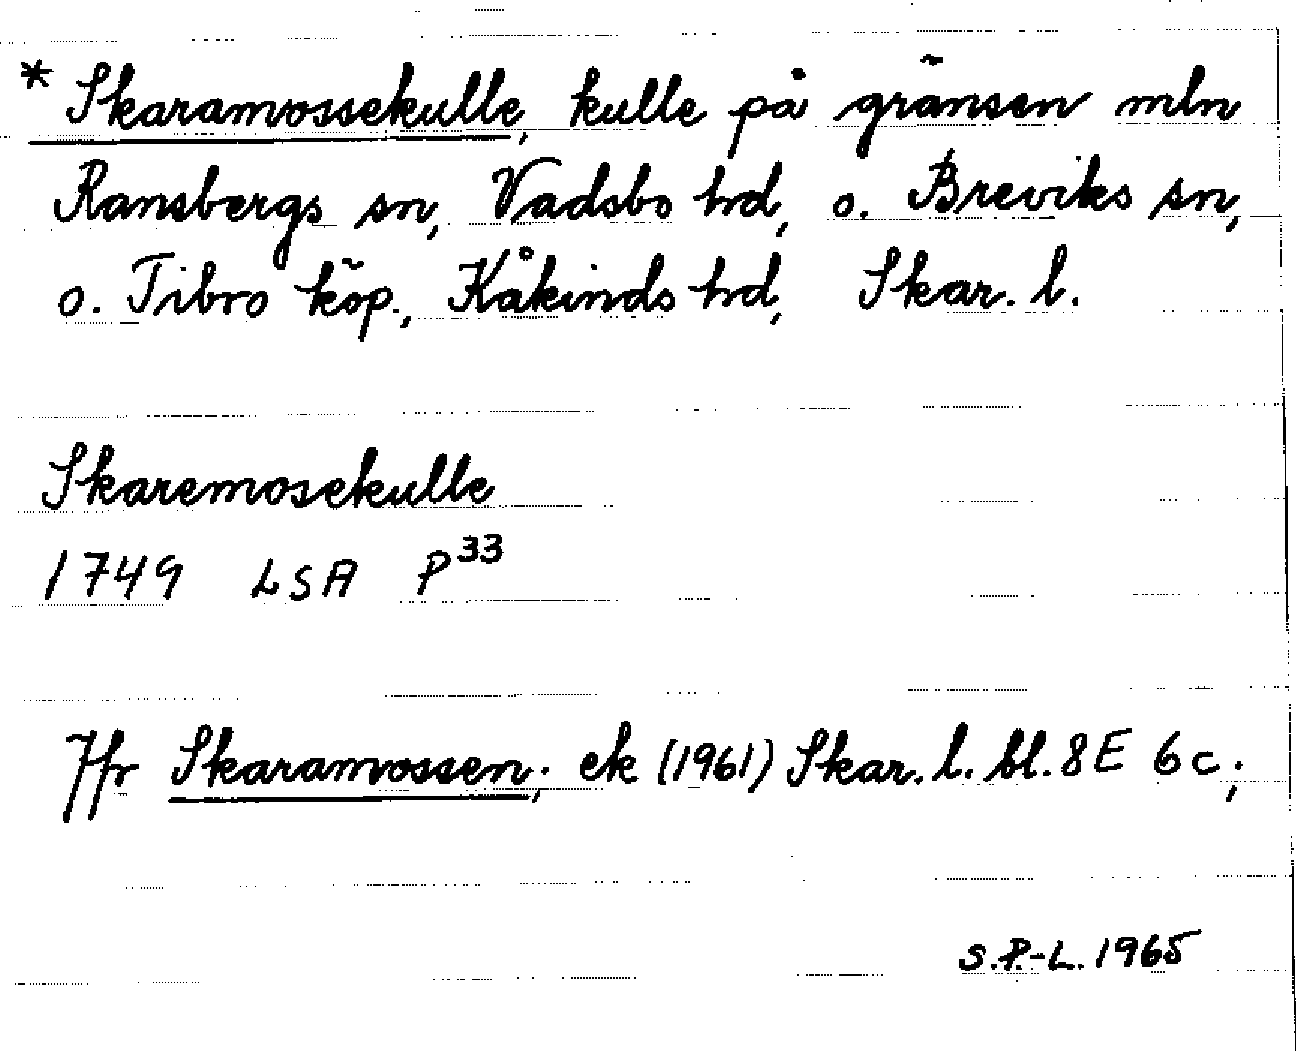 * Skaramossekulle, kulle på gränsen mln
Ransbergs sn, Vadsbo hd, o. Breviks sn,
o. Tibro köp., Kåkinds hd, Skar. l.
Skaremosekulle
1749 LSA P³³
Jfr Skaramossen; ek (1961) Skar. l. bl. 8E 6c;
S.P.-L. 1965